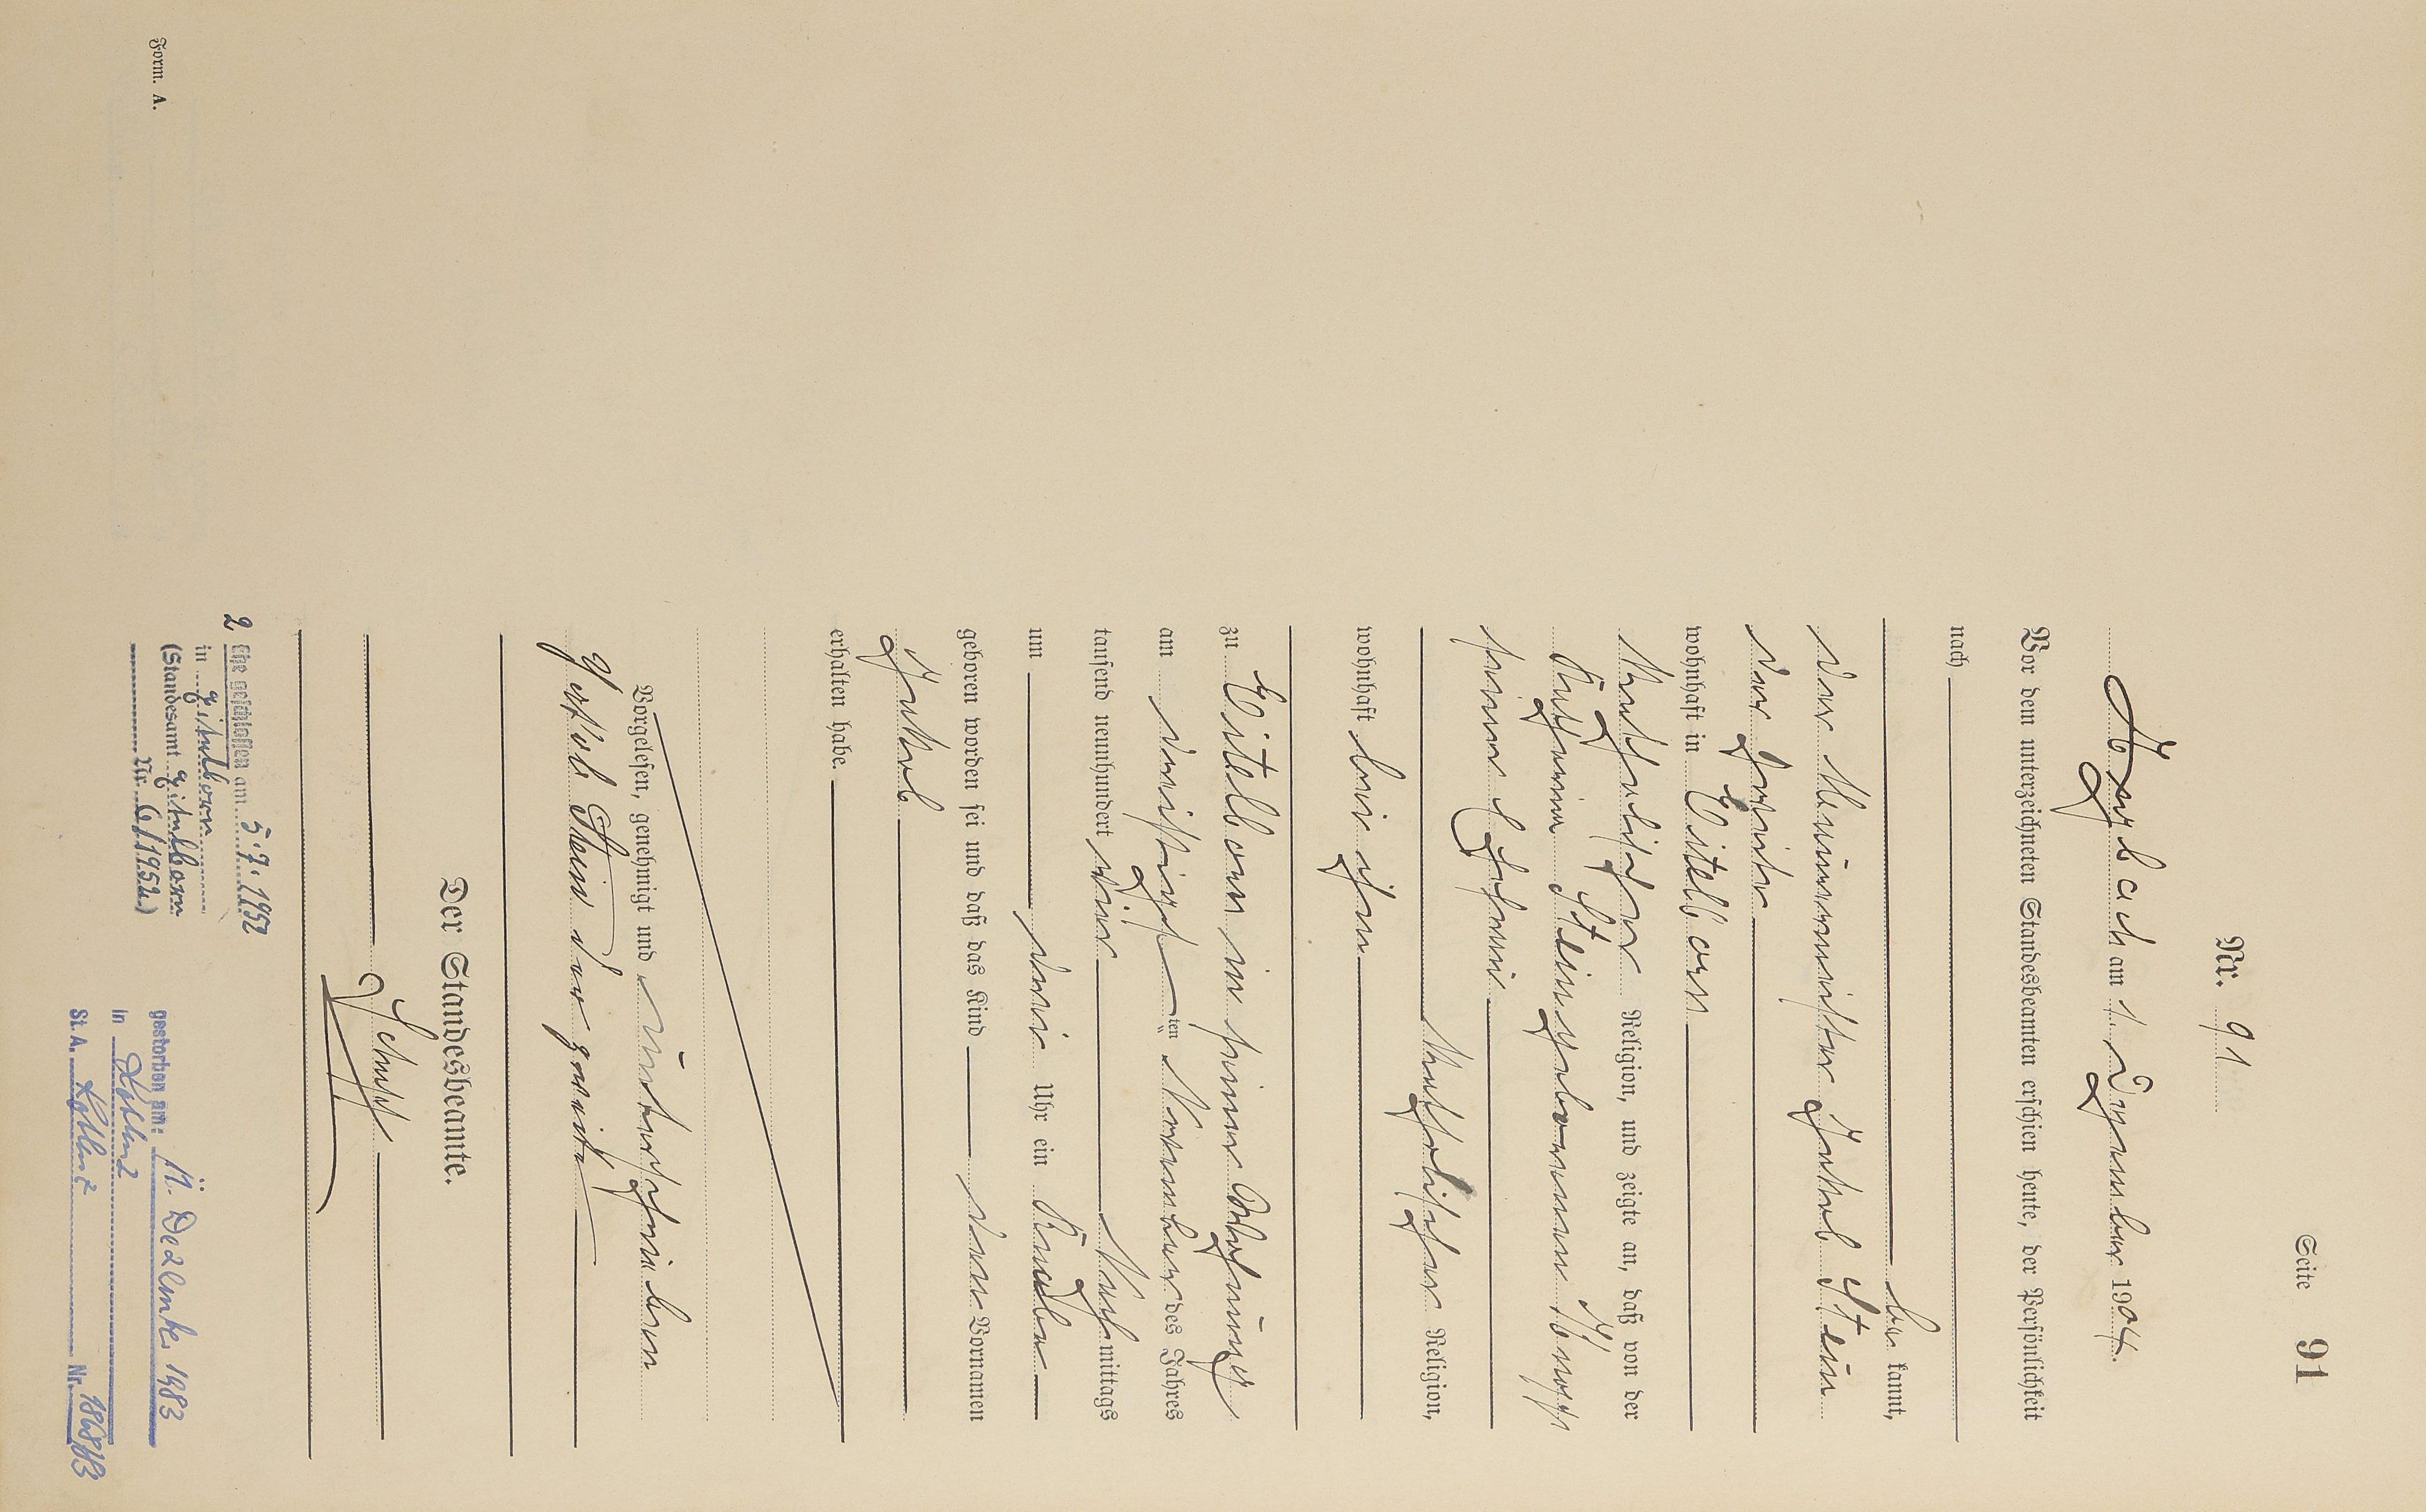 Seite 91
Nr. 91
Arzbach am 1. Dezember 1904.
Vor dem unterzeichneten Standesbeamten erschien heute, der Persönlichkeit
nach
be kannt,
der Maurermeister Jakob Stein
der zweite
wohnhaft in Eitelborn
katholischer Religion, und zeigte an, daß von der
Stein geborenen Knopf
seiner Ehefrau
katholischer Religion,
wohnhaft bei ihm
zu Eitelborn in seiner Wohnung
am dreißigst ten November des Jahres
tausend neunhundert vier Nach mittags
um drei Uhr ein Knabe
geboren worden sei und daß das Kind den Vornamen
Jakob
erhalten habe.
Vorgelesen, genehmigt und unterschrieben
Jakob Stein der zweite
Der Standesbeamte.
2 Ehe geschlossen am 5.7.1952
in Eitelborn
(Standesamt Eitelborn
Nr. 6/1952)
gestorben am: 11. Dezember 1983
in Koblenz
St. A. Koblenz Nr. 1868/83
Form. A.